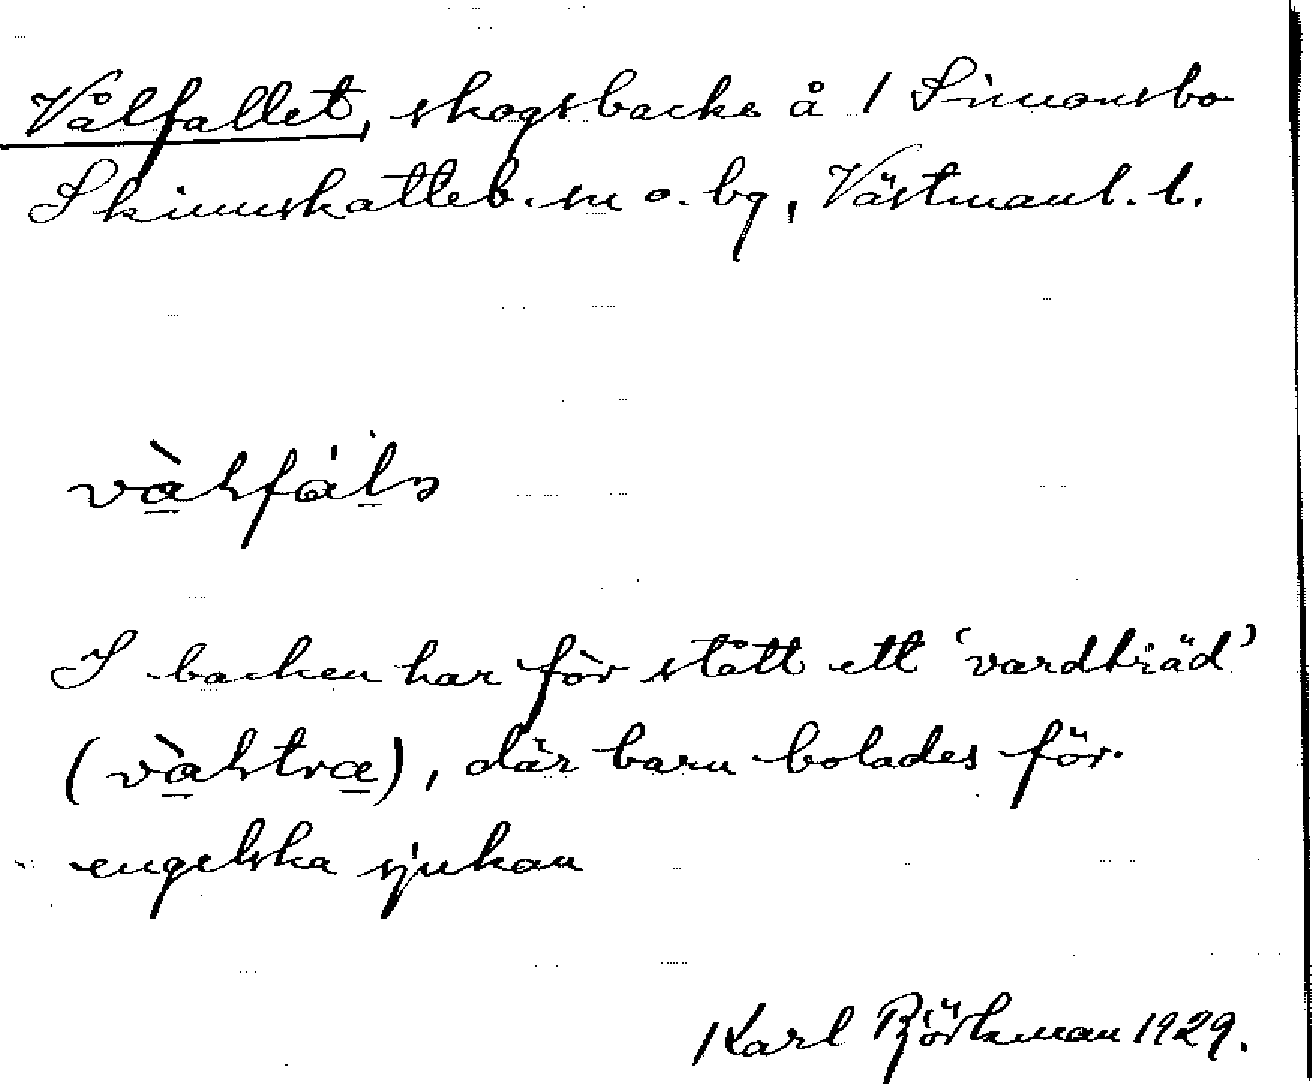 Vålfallet, skogsbacke å 1 Simonsbo
Skinnskatteb. sn o. bg, Västmanl. l.
I backen har för stått ett 'vardträd'
där barn bolades för
engelska sjukan
Karl Björkman 1929.